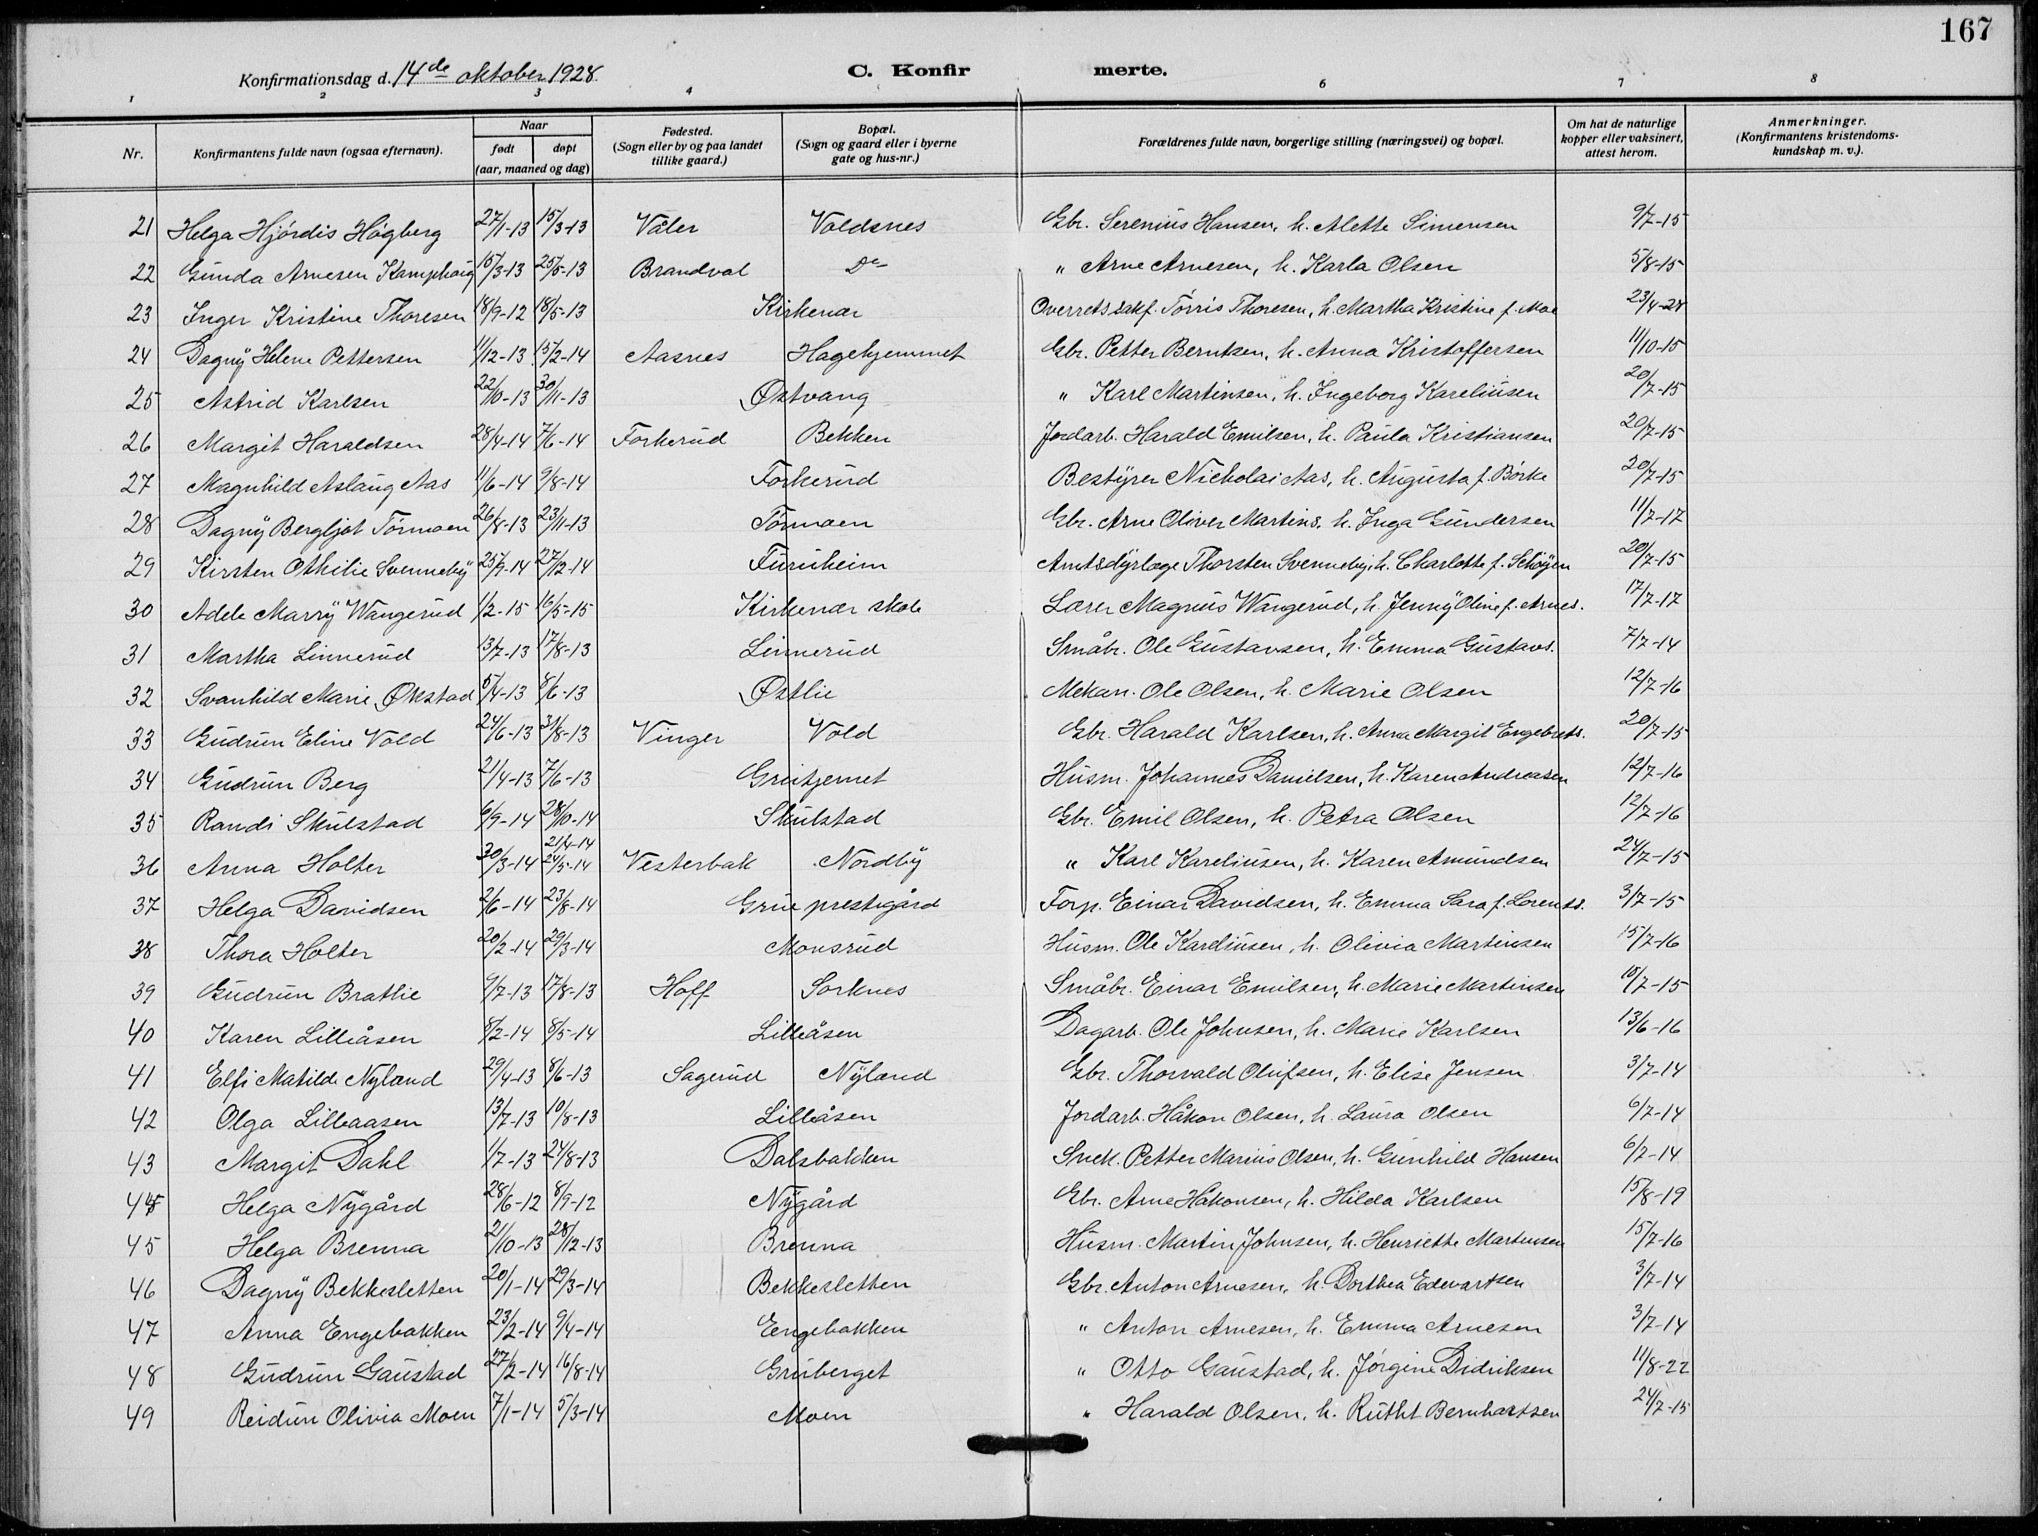 167
Konfirmationsdag d. 14de oktober 1928. C. Konfir merte.
1 2 3 4 6 7 8
Nr. Konfirmantens fulde navn (ogsaa efternavn). Naar født døpt (aar, maaned og dag) Fødested. (Sogn eller by og paa landet tillike gaard.) Bopæl. (Sogn og gaard eller i byerne gate og hus-nr.) Forældrenes fulde navn, borgerlige stilling (næringsvei) og bopæl. Om hat de naturlige kopper eller vaksinert, attest herom. Anmerkninger. (Konfirmantens kristendoms-kundskap m. v.).
21 Helga Hjørdis Høgberg 27/1-13 15/3-13 Våler Voldsnes Gbr. Serenius Hansen, h. Alette Simensen 9/7-15
22 Gunda Arnesen Kamphaug 15/3-13 25/5-13 Brandval Do " Arne Arnesen, h. Karla Olsen 5/8-15
23 Inger Kristine Thoresen 18/9-12 18/5-13 Kirkenær Overretssakf. Tørris Thoresen, h. Martha Kristine f. Moe 23/4-28
24 Dagny Helene Pettersen 11/12-13 15/2-14 Aasnes Hagehjemmet Gbr. Petter Berntsen, h. Anna Kristoffersen 11/10-15
25 Astrid Karlsen 22/10-13 30/11-13 Østvang " Karl Martinsen, h. Ingeborg Kareliusen 20/7-15
26 Margit Haraldsen 28/4-14 7/6-14 Forkerud Bekken Jordarb. Harald Emilsen, h. Paula Kristiansen 20/7-15
27 Magnhild Aslaug Aas 11/6-14 9/8-14 Forkerud Bestyrer Nicholai Aas, h. Augusta f. Børke 20/7-15
28 Dagny Bergljot Tørmoen 26/8-13 23/11-13 Tørmoen Gbr. Arne Oliver Martins. h. Inga Gundersen 11/7-17
29 Kirsten Othilie Svenneby 25/9-14 27/12-14 Furuheim Amtsdyrlæge Thorsten Svenneby, h. Charlotte f. Schøyen 20/7-15
30 Adele Marry Wangerud 1/2-15 16/5-15 Kirkenær skole Lærer Magnus Wangerud, h. Jenny Oline f. Arnes. 17/7-17
31 Martha Linnerud 13/7-13 17/8-13 Linnerud Småbr. Ole Gustavsen, h. Emma Gustavs. 7/7-14
32 Svanhild Marie Økstad 5/4-13 8/6-13 Østlie Mekan. Ole Olsen, h. Marie Olsen 12/7-16
33 Gudrun Eline Vold 24/6-13 31/8-13 Vinger Vold Gbr. Harald Karlsen, h. Anna Margit Engebrets. 20/7-15
34 Gudrun Berg 21/4-13 7/6-13 Gruetjernet Husm. Johannes Danielsen, h. Karen Andreasen 12/7-16
35 Randi Skulstad 6/9-14 28/10-14 Skulstad Gbr. Emil Olsen, h. Petra Olsen 12/7-16
36 Anna Holter 30/3-14 21/4-14 24/5-14 Vesterbak Nordby " Karl Kareliusen, h. Karen Amundsen 24/7-15
37 Helga Davidsen 2/6-14 23/8-14 Grue prestegård Forp. Einar Davidsen, h. Emma Sara f. Lorents. 3/7-15
38 Thora Holter 20/2-14 29/3-14 Monsrud Husm. Ole Kareliusen, h. Olivia Martinsen 15/7-16
39 Gudrun Bratlie 9/7-13 17/8-13 Hoff Sorknes Småbr. Einar Emilsen, h. Marie Martinsen 10/7-15
40 Karen Lilleåsen 8/2-14 8/5-14 Lilleåsen Dagarb. Ole Johnsen, h. Marie Karlsen 13/6-16
41 Elfi Matilde Nyland 29/4-13 8/6-13 Sagerud Nyland Gbr. Thorvald Olufsen, h. Elise Jensen 3/7-14
42 Olga Lilleaasen 13/7-13 10/8-13 Lilleåsen Jordarb. Håkon Olsen, h. Laura Olsen 6/7-14
43 Margit Dahl 1/7-13 24/8-13 Dalsbakken Snek. Petter Marius Olsen, h. Gunhild Hansen 6/7-14
44 Helga Nygård 28/6-12 8/9-12 Nygård Gbr. Arne Håkonsen, h. Hilda Karlsen 15/8-19
45 Helga Brenna 21/10-13 28/12-13 Brenna Husm. Martin Johnsen, h. Henriette Martinsen 15/7-16
46 Dagny Bekkesletten 20/1-14 29/3-14 Bekkesletten Gbr. Anton Arnesen, h. Dorthea Edevartsen 3/7-14
47 Anna Engebakken 23/2-14 9/4-14 Engebakken " Anton Arnesen, h. Emma Arnesen 3/7-14
48 Gudrun Gaustad 27/2-14 16/8-14 Grueberget " Otto Gaustad, h. Jørgine Didriksen 11/8-22
49 Reidun Olivia Moen 7/1-14 5/3-14 Moen " Harald Olsen, h. Rutht Bernhartsen 24/7-15